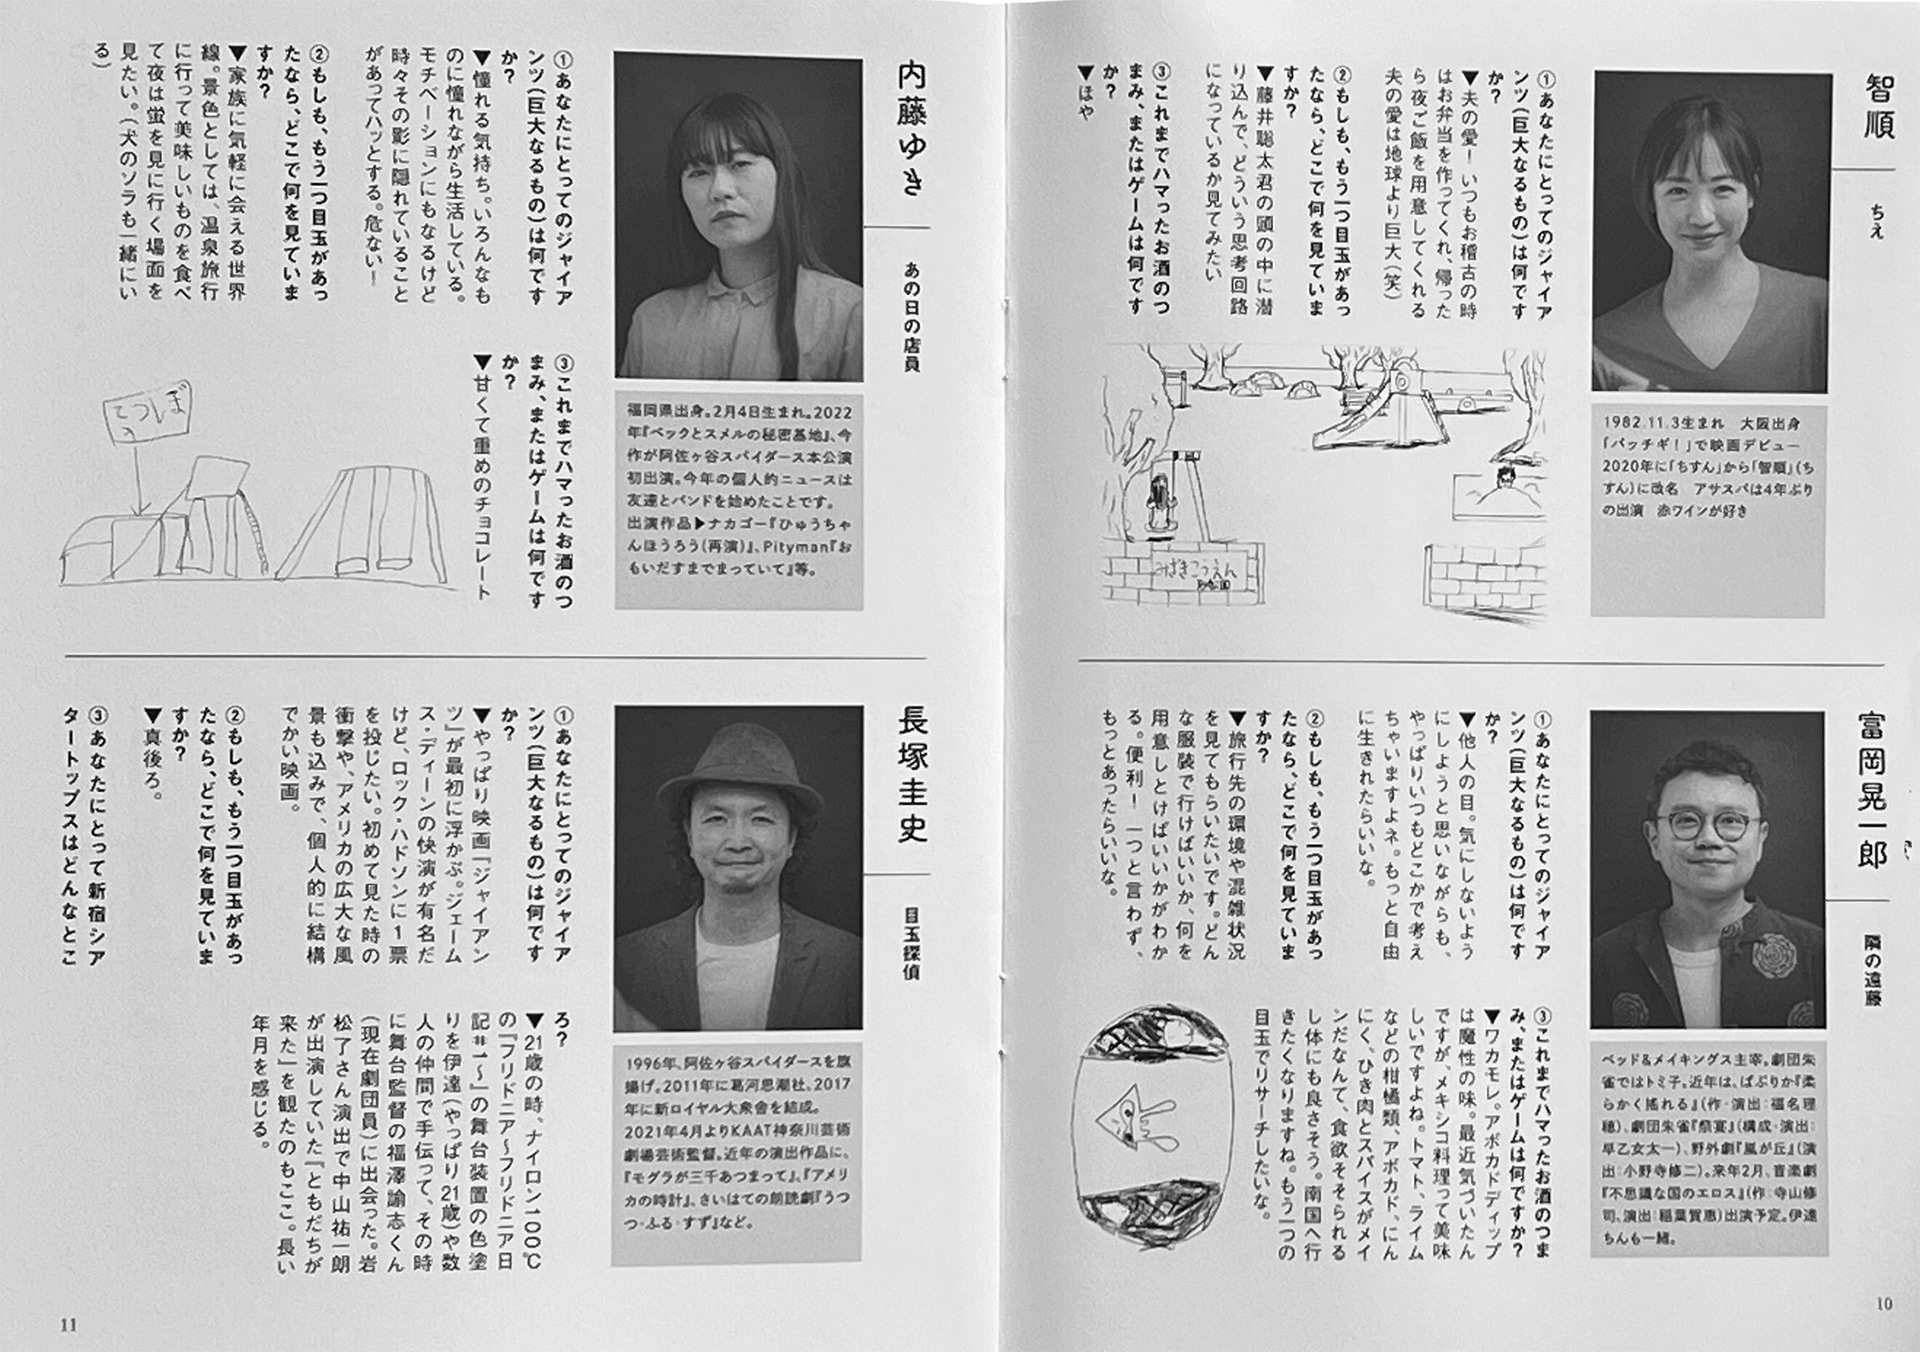 智順
ちえ
①あなたにとってのジャイア
ンツ(巨大なるもの)は何です
か?
▼夫の愛！いつもお稽古の時
はお弁当を作ってくれ、帰った
ら夜ご飯を用意してくれる
夫の愛は地球より巨大(笑)
②もしも、もう一つ目玉があっ
たなら、どこで何を見ていま
すか?
▼藤井聡太君の頭の中に潜
り込んで、どういう思考回路
になっているか見てみたい
③これまでハマったお酒のつ
まみ、またはゲームは何です
か?
▼ほや
1982.11.3生まれ　大阪出身
「パッチギ！」で映画デビュー
2020年に「ちすん」から「智順」(ち
すん)に改名　アサスパは4年ぶり
の出演　赤ワインが好き
みざきこうえん
富岡晃一郎
隣の遠藤
①あなたにとってのジャイア
ンツ(巨大なるもの)は何です
か?
▼他人の目。気にしないよう
にしようと思いながらも、
やっぱりいつもどこかで考え
ちゃいますよネ。もっと自由
に生きれたらいいな。
②もしも、もう一つ目玉があっ
たなら、どこで何を見ていま
すか?
▼旅行先の環境や混雑状況
を見てもらいたいです。どん
な服装で行けばいいか、何を
用意しとけばいいかがわか
る。便利！一つと言わず、
もっとあったらいいな。
③これまでハマったお酒のつま
み、またはゲームは何ですか?
▼ワカモレ。アボカドディップ
は魔性の味。最近気づいたん
ですが、メキシコ料理って美味
しいですよね。トマト、ライム
などの柑橘類、アボカド、にん
にく、ひき肉とスパイスがメイ
ンだなんて、食欲そそられる
し体にも良さそう。南国へ行
きたくなりますね。もう一つの
目玉でリサーチしたいな。
ベッド&メイキングス主宰。劇団朱
雀ではトミ子。近年は、ぱぷりか『柔
らかく搖れる』(作・演出：福名理
穂)、劇団朱雀『祭宴』(構成・演出：
早乙女太一)、野外劇『嵐が丘』(演
出：小野寺修二)。来年2月、音楽劇
『不思議な国のエロス』(作：寺山修
司、演出：稲葉賀恵)出演予定。伊達
ちんも一緒。
10
内藤ゆき
あの日の店員
①あなたにとってのジャイア
ンツ(巨大なるもの)は何です
か?
▼憧れる気持ち。いろんなも
のに憧れながら生活している。
モチベーションにもなるけど
時々その影に隠れていること
があってハッとする。危ない！
②もしも、もう一つ目玉があっ
たなら、どこで何を見ていま
すか?
▼家族に気軽に会える世界
線。景色としては、温泉旅行
に行って美味しいものを食べ
て夜は蛍を見に行く場面を
見たい。(犬のソラも一緒にい
る)
③これまでハマったお酒のつ
まみ、またはゲームは何です
か?
▼甘くて重めのチョコレート
福岡県出身。2月4日生まれ。2022
年『ベックとスメルの秘密基地』、今
作が阿佐ヶ谷スパイダース本公演
初出演。今年の個人的ニュースは
友達とバンドを始めたことです。
出演作品▶ナカゴー『ひゅうちゃ
んほうろう(再演)』、Pityman『お
もいだすまでまっていて』等。
てつぼ
う
長塚圭史
目玉探偵
①あなたにとってのジャイア
ンツ(巨大なるもの)は何です
か?
▼やっぱり映画『ジャイアン
ツ』が最初に浮かぶ。ジェーム
ス・ディーンの快演が有名だ
けど、ロック・ハドソンに1票
を投じたい。初めて見た時の
衝撃や、アメリカの広大な風
景も込みで、個人的に結構
でかい映画。
②もしも、もう一つ目玉があっ
たなら、どこで何を見ていま
すか?
▼真後ろ。
③あなたにとって新宿シア
タートップスはどんなとこ
ろ?
▼21歳の時、ナイロン100℃
の『フリドニア〜フリドニア日
記#1〜』の舞台装置の色塗
りを伊達(やっぱり21歳)や数
人の仲間で手伝って、その時
に舞台監督の福澤諭志くん
(現在劇団員)に出会った。岩
松了さん演出で中山祐一朗
が出演していた『ともだちが
来た』を観たのもここ。長い
年月を感じる。
1996年、阿佐ヶ谷スパイダースを旗
揚げ。2011年に葛河思潮社、2017
年に新ロイヤル大衆舎を結成。
2021年4月よりKAAT神奈川芸術
劇場芸術監督。近年の演出作品に、
『モグラが三千あつまって』、『アメリ
カの時計』、さいはての朗読劇『うつ
つ・ふる・すず』など。
11